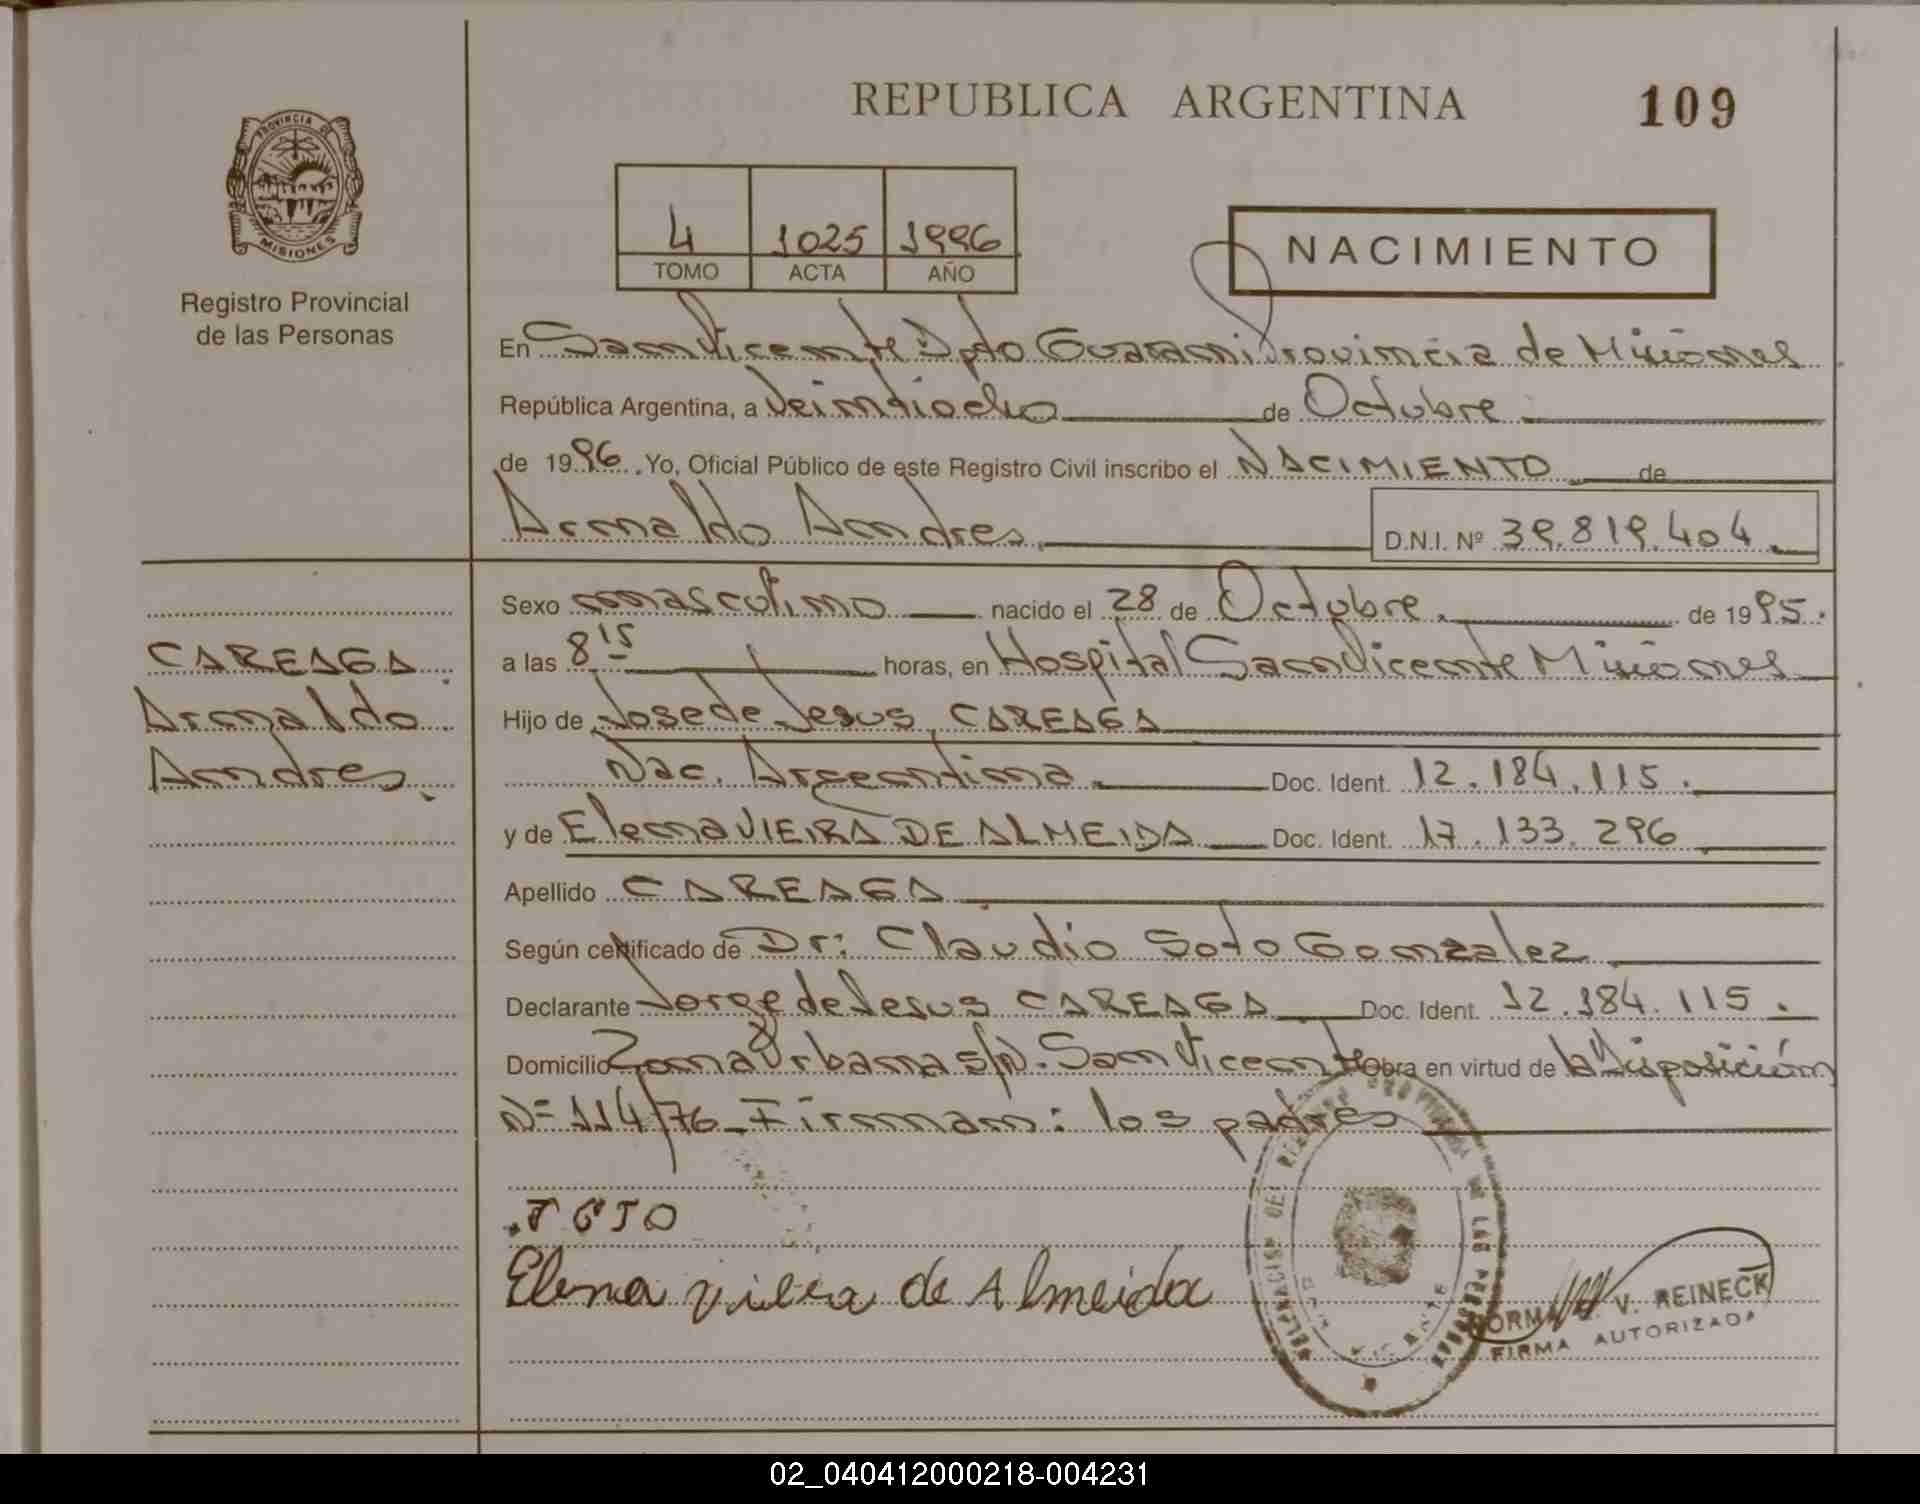 REPUBLICA ARGENTINA
109
PROVINCIA DE
MISIONES
Registro Provincial
de las Personas
4 1025 1996
TOMO ACTA AÑO
NACIMIENTO
En San Vicente Dpto Guarani Provincia de Misiones
República Argentina, a Veintiocho de Octubre
de 1996. Yo, Oficial Público de este Registro Civil inscribo el NACIMIENTO de
Arnaldo Andres
D.N.I. Nº 39.819.404
Sexo masculino nacido el 28 de Octubre. de 1995.
CAREAGA
Arnaldo
Andres
a las 8 15 horas, en Hospital San Vicente Misiones
Hijo de Jose de Jesus CAREAGA
Nac. Argentina Doc. Ident. 12.184.115.
y de Elena VIEIRA DE ALMEIDA Doc. Ident. 17.133.296
Apellido CAREAGA
Según certificado de Dr: Claudio Soto Gonzalez
Declarante Jorge de Jesus CAREAGA Doc. Ident. 12.184.115.
Domicilio Zona Urbana s/N. San Vicente Obra en virtud de la Disposición
Nº 114/76_ Firman: los padres
Elena vieira de Almeida
V. REINECK
FIRMA AUTORIZADA
02_040412000218-004231